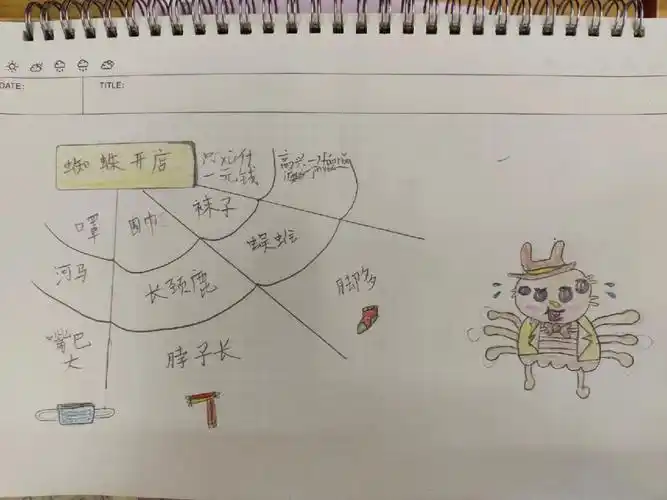 DATE:
TITLE:
蜘蛛开店
只xū付
一元钱
口罩
围巾
袜子
河马
长颈鹿
蜈蚣
嘴巴
大
脖子长
脚多